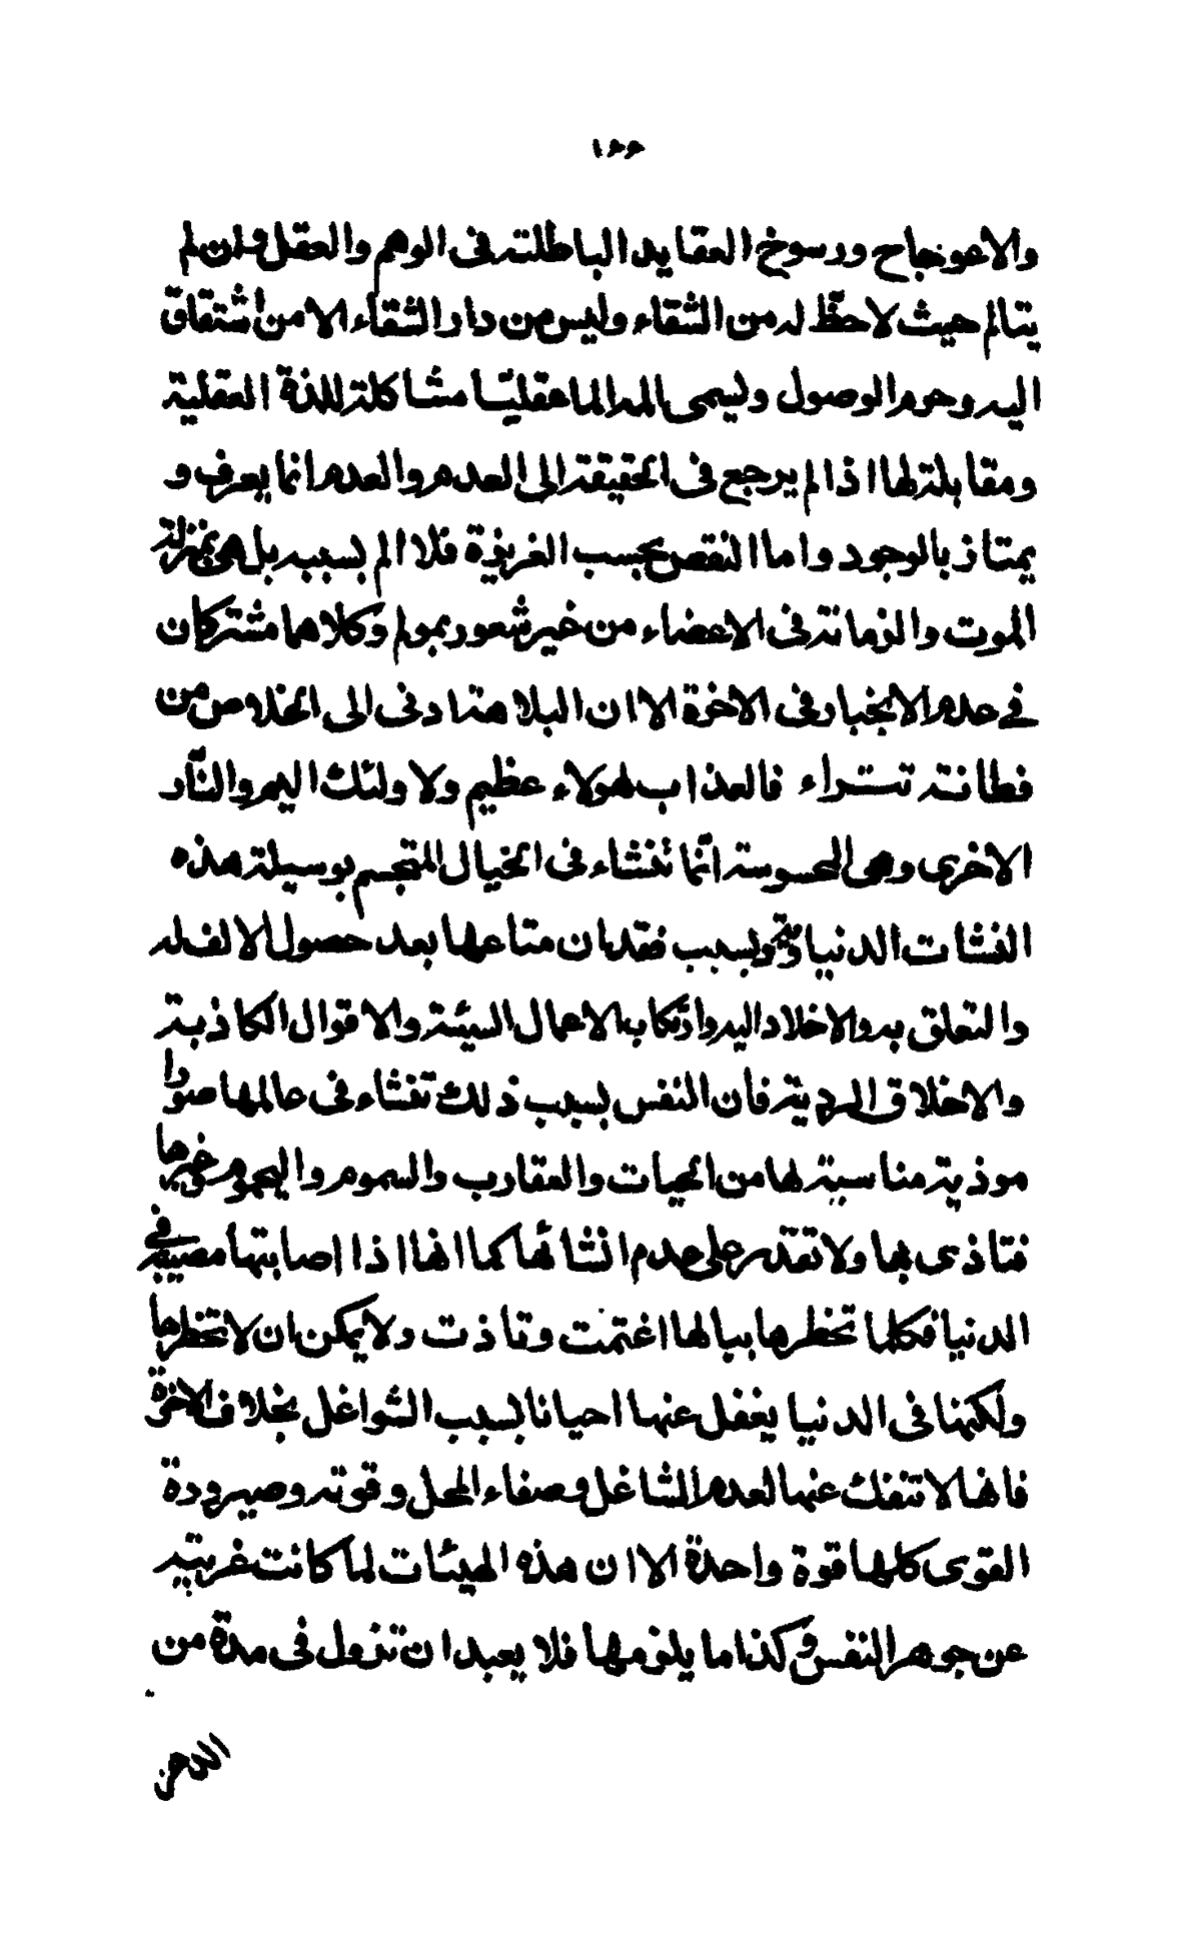 ١٢٢
والاعوجاج ورسوخ العقايد الباطلة فى الوهم والعقل وان لم
يتالم حيث لاحظّ له من الشقاء وليس من دار الشقاء الا من اشتقاق
اليه وحرم الوصول وليسمى المه الما عقليّا مشاكلة للذة العقلية
ومقابلة لها اذ الم يرجع فى الحقيقة الى العدم والعدم انما يعرف و
يمتاز بالوجود واما النقص بحسب الغريزة فلا الم بسببه بل هى بمنزلة
الموت والزمانة فى الاعضاء من غير شعور بمولم وكلاهما مشتركان
فى عدم الانجبار فى الاخرة الا ان البلاهة ادنى الى الخلاص من
فطانة تستراء فالعذاب لهولاء عظيم ولاولئك اليم والنّار
الاخرى وهى المحسوسة انّما تنشاء فى الخيال المتجسم بوسيلة هذه
النشات الدنياوية بسبب فقدان متاعها بعد حصول الالف له
والتعلق به والاخلاد اليه وارتكاب الاعمال السيئة والاقوال الكاذبة
والاخلاق الردية فان النفس بسبب ذلك تنشاء فى عالمها صورا
موذية مناسبة لها من الحيات والعقارب والسموم واليحموم وغيرها
فتاذى بها ولا تقدر على عدم انشائها كما انها اذا اصابتها مصيبة فى
الدنيا فكلما تخطرها ببالها اغتمت وتاذت ولا يمكن ان لا تخطرها
ولكنها فى الدنيا يغفل عنها احيانا بسبب الشواغل بخلاف الاخرة
فانها لا تنفك عنها لعدم الشاغل وصفاء المحل وقوته وصيرورة
القوى كلها قوة واحدة الا ان هذه الهيئات لما كانت غريبة
عن جوهر النفس وكذا ما يلزمها فلا يعبد ان تزول فى مدة من
الدهر